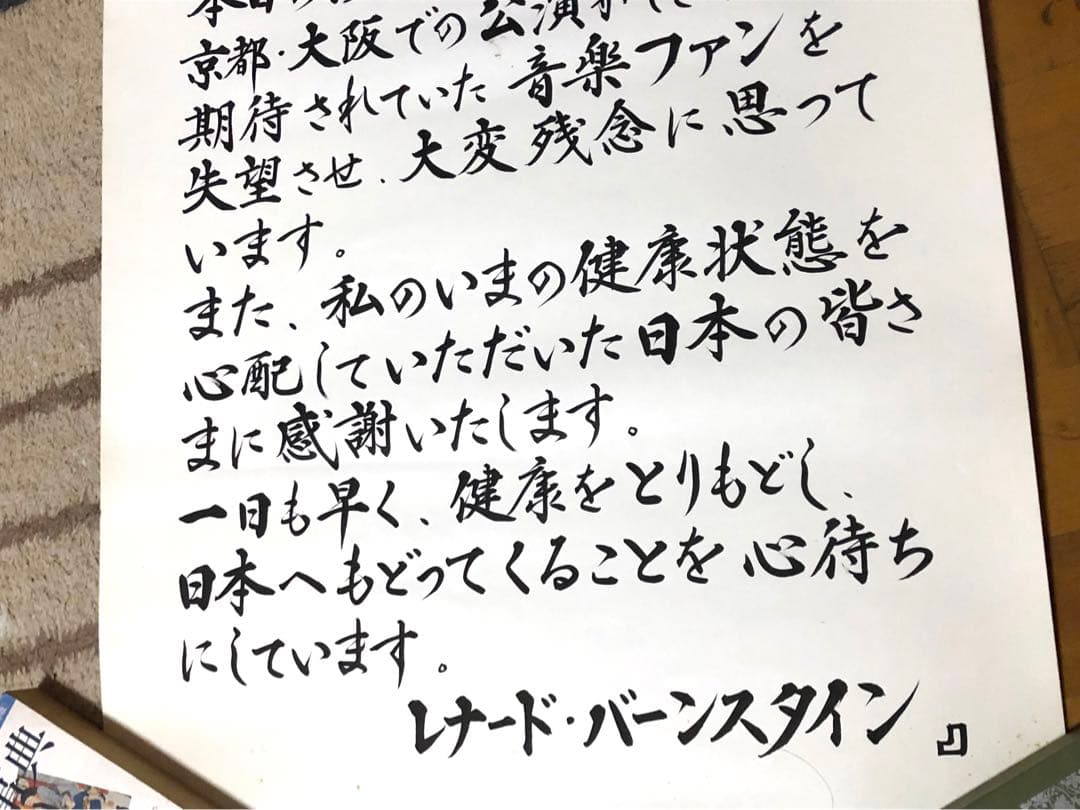 京都・大阪での公演
期待されていた音楽ファンを
失望させ、大変残念に思って
います。
また、私のいまの健康状態を
心配していただいた日本の皆さ
まに感謝いたします。
一日も早く、健康をとりもどし、
日本へもどってくることを心待ち
にしています。
レナード・バーンスタイン』
典